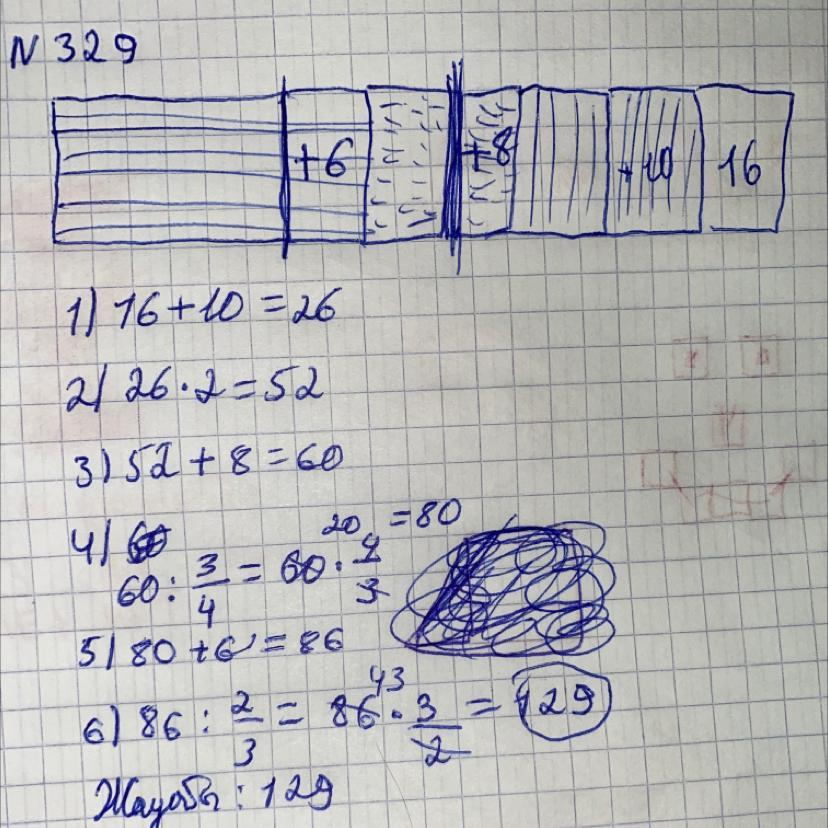 N 329
+6 +8 +10 16
1) 16+10=26
2) 26·2=52
3) 52+8=60
4) 60
60 : 3/4 = 60 · 4/3 20 =80
5) 80+6=86
6) 86 : 2/3 = 86 · 3/2 43 = 129
Жауабы: 129